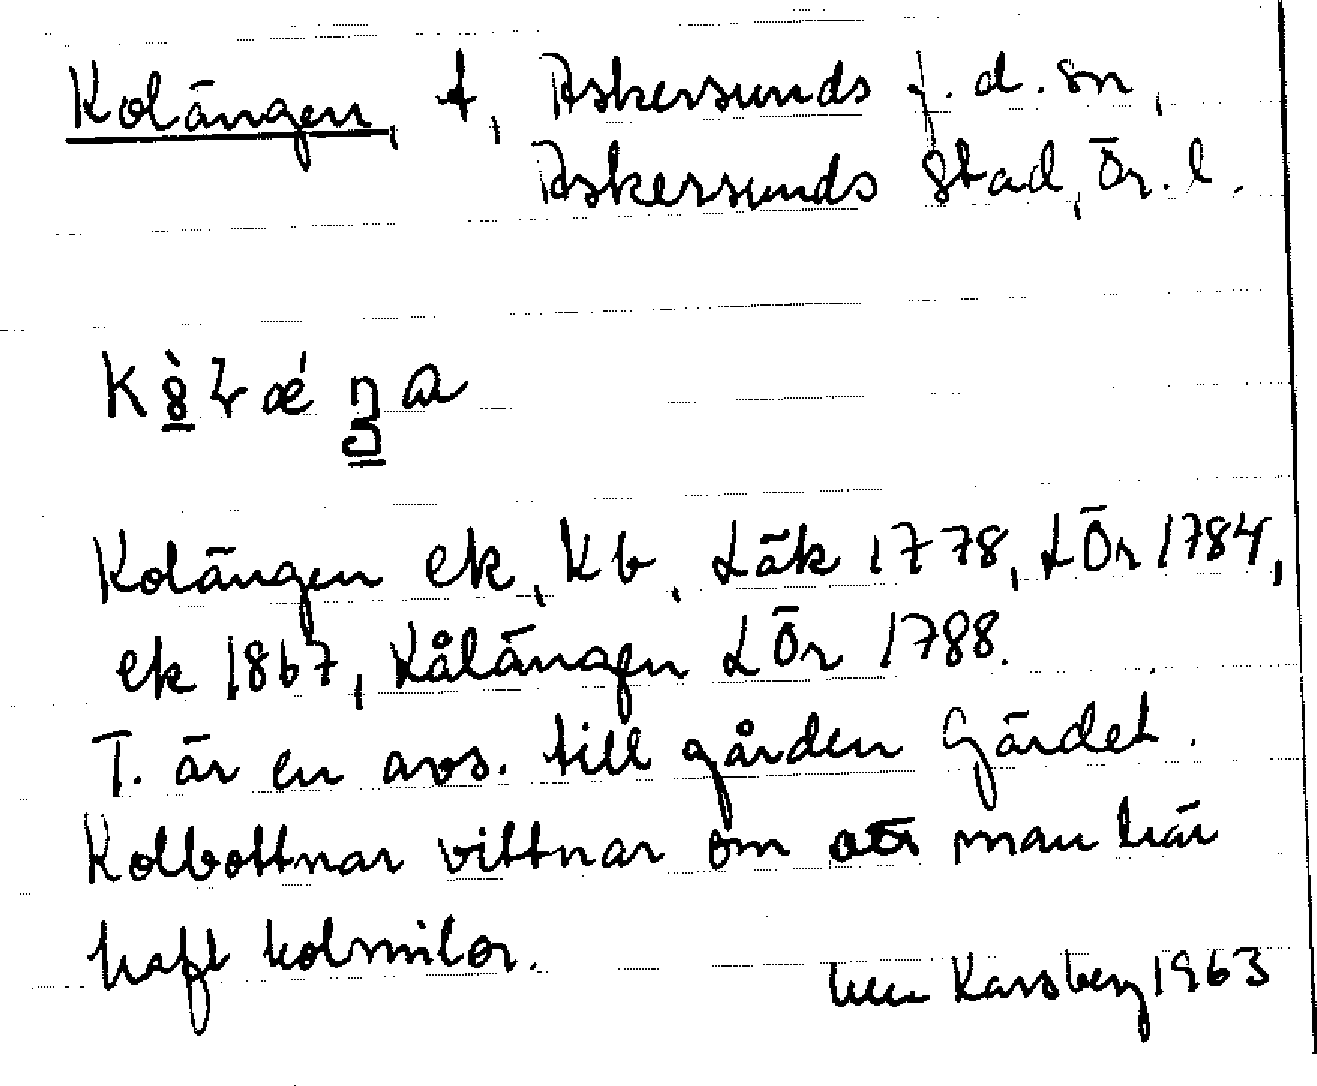 Kolängen, t, Askersunds f. d. sn,
Askersunds stad, Ör. l.
Kolängen ek, kb, LäK 1778, LÖr 1784,
ek 1867, Kålängen LÖr 1788.
T. är en avs. till gården Gärdet.
Kolbottnar vittnar om att man här
haft kolmilor.
Karsberg 1963